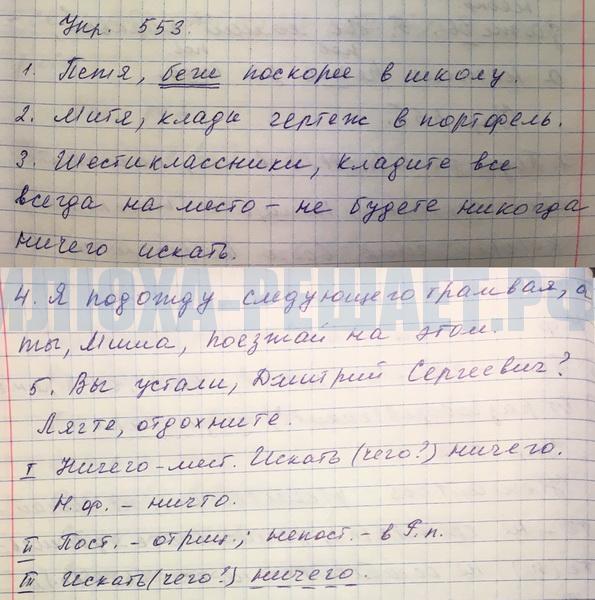 Упр. 553.
1. Петя, беги поскорее в школу.
2. Митя, клади чертеж в портфель.
3. Шестиклассники, кладите все
всегда на место – не будете никогда
ничего искать.
ИЛЮХА-РЕШАЕТ.РФ
4. Я подожду следующего трамвая, а
ты, Миша, поезжай на этом.
5. Вы устали, Дмитрий Сергеевич?
Лягте, отдохните.
I Ничего – мест. Искать (чего?) ничего.
Н.ф. – ничто.
II Пост. – отриц.; непост. – в Р.п.
III Искать (чего?) ничего.